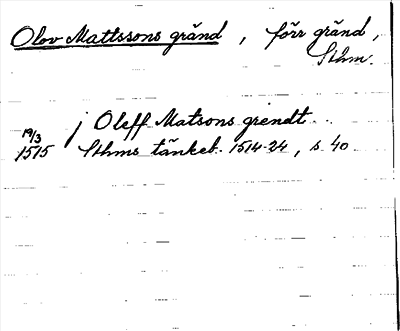 Olov Mattssons gränd, förr gränd,
Sthm.
19/3 j Oleff Matsons grendt..
1515 Sthms tänkeb. 1514-24, s. 40